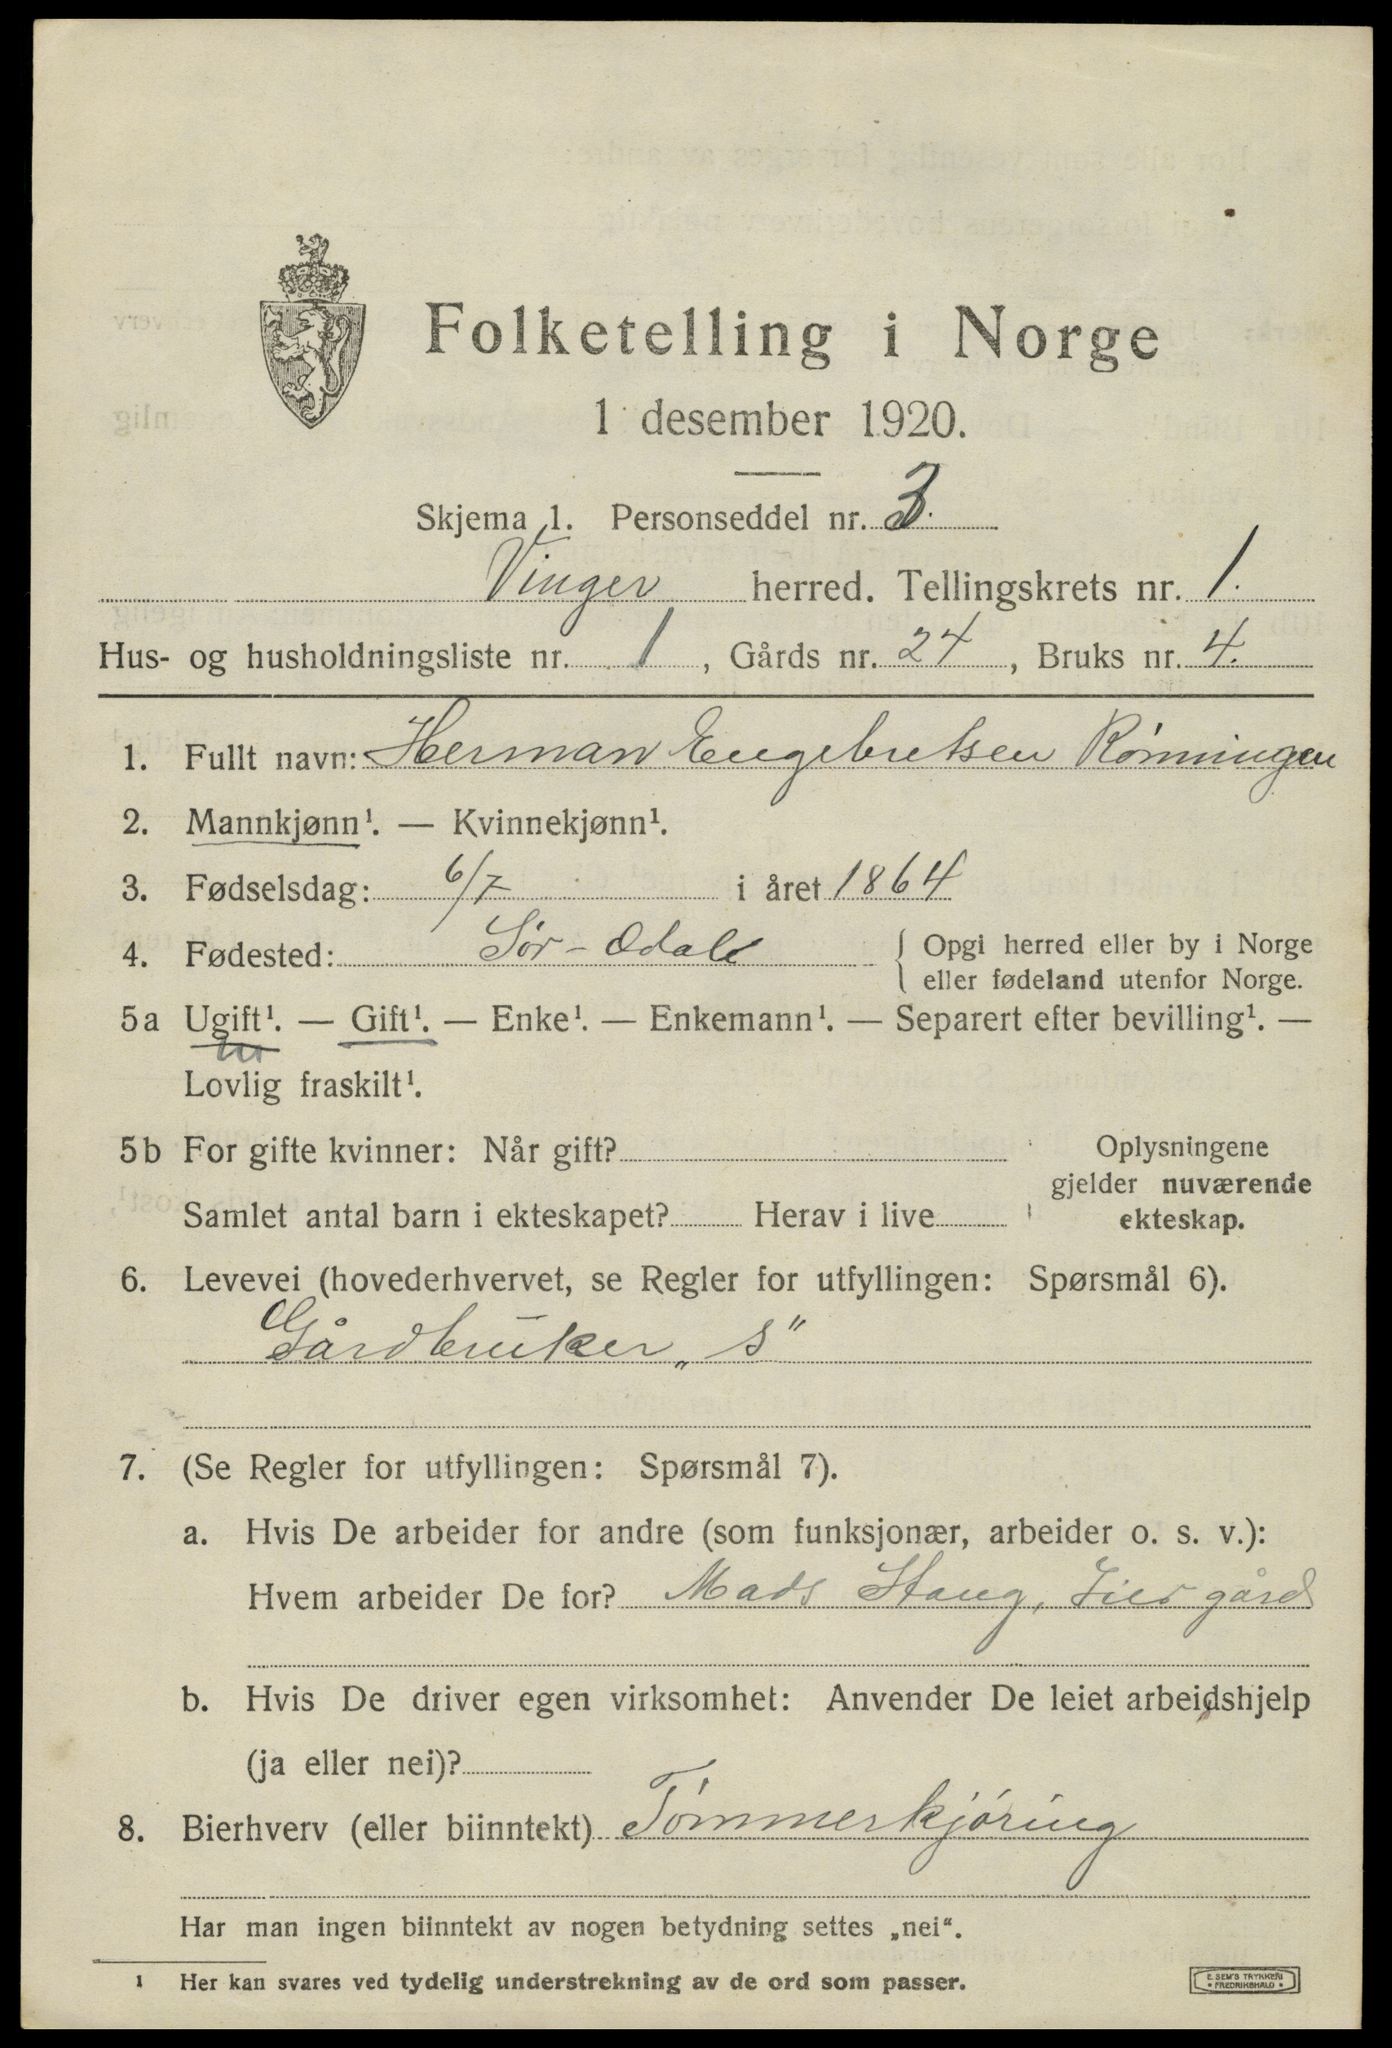 Folketelling i Norge
1 desember 1920.
Skjema 1. Personseddel nr. 3.
Vinger herred. Tellingskrets nr. 1.
Hus- og husholdningsliste nr. 1, Gårds nr. 24, Bruks nr. 4.
1. Fullt navn: Herman Engebretsen Rønningen
2. Mannkjønn¹. — Kvinnekjønn¹.
3. Fødselsdag: 6/7 i året 1864
4. Fødested: Sør-Odal { Opgi herred eller by i Norge
eller fødeland utenfor Norge.
5a Ugift¹. — Gift¹. — Enke¹. — Enkemann¹. — Separert efter bevilling¹. —
Lovlig fraskilt¹.
5b For gifte kvinner: Når gift? Oplysningene
gjelder nuværende
Samlet antal barn i ekteskapet? Herav i live ekteskap.
6. Levevei (hovederhvervet, se Regler for utfyllingen: Spørsmål 6).
Gårdbruker „s"
7. (Se Regler for utfyllingen: Spørsmål 7).
a. Hvis De arbeider for andre (som funksjonær, arbeider o. s. v.):
Hvem arbeider De for? Mads Stang, gård
b. Hvis De driver egen virksomhet: Anvender De leiet arbeidshjelp
(ja eller nei)?
8. Bierhverv (eller biinntekt) Tømmerkjøring
Har man ingen biinntekt av nogen betydning settes „nei“.
¹ Her kan svares ved tydelig understrekning av de ord som passer.
E. SEM'S TRYKKERI
• FREDRIKSHALD •